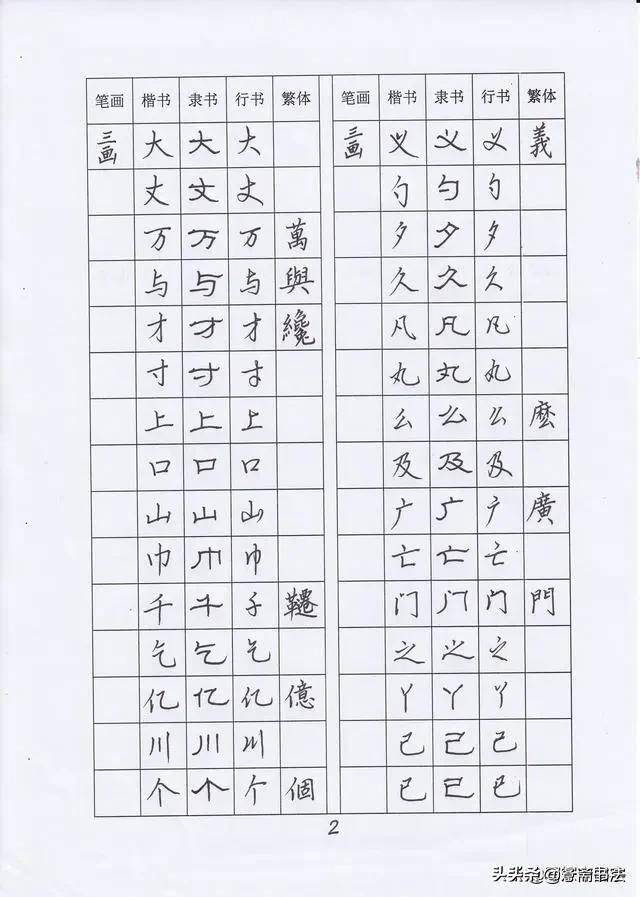 笔画 楷书 隶书 行书 繁体
三画 大 大 大
丈 丈 丈
万 万 万 萬
与 与 与 與
才 才 才 纔
寸 寸 寸
上 上 上
口 口 口
山 山 山
巾 巾 巾
千 千 千 韆
乞 乞 乞
亿 亿 亿 億
川 川 川
个 个 个 個
笔画 楷书 隶书 行书 繁体
三画 义 义 义 義
勺 勺 勺
夕 夕 夕
久 久 久
凡 凡 凡
丸 丸 丸
么 么 么 麼
及 及 及
广 广 广 廣
亡 亡 亡
门 门 门 門
之 之 之
丫 丫 丫
己 己 己
已 已 已
2
头条